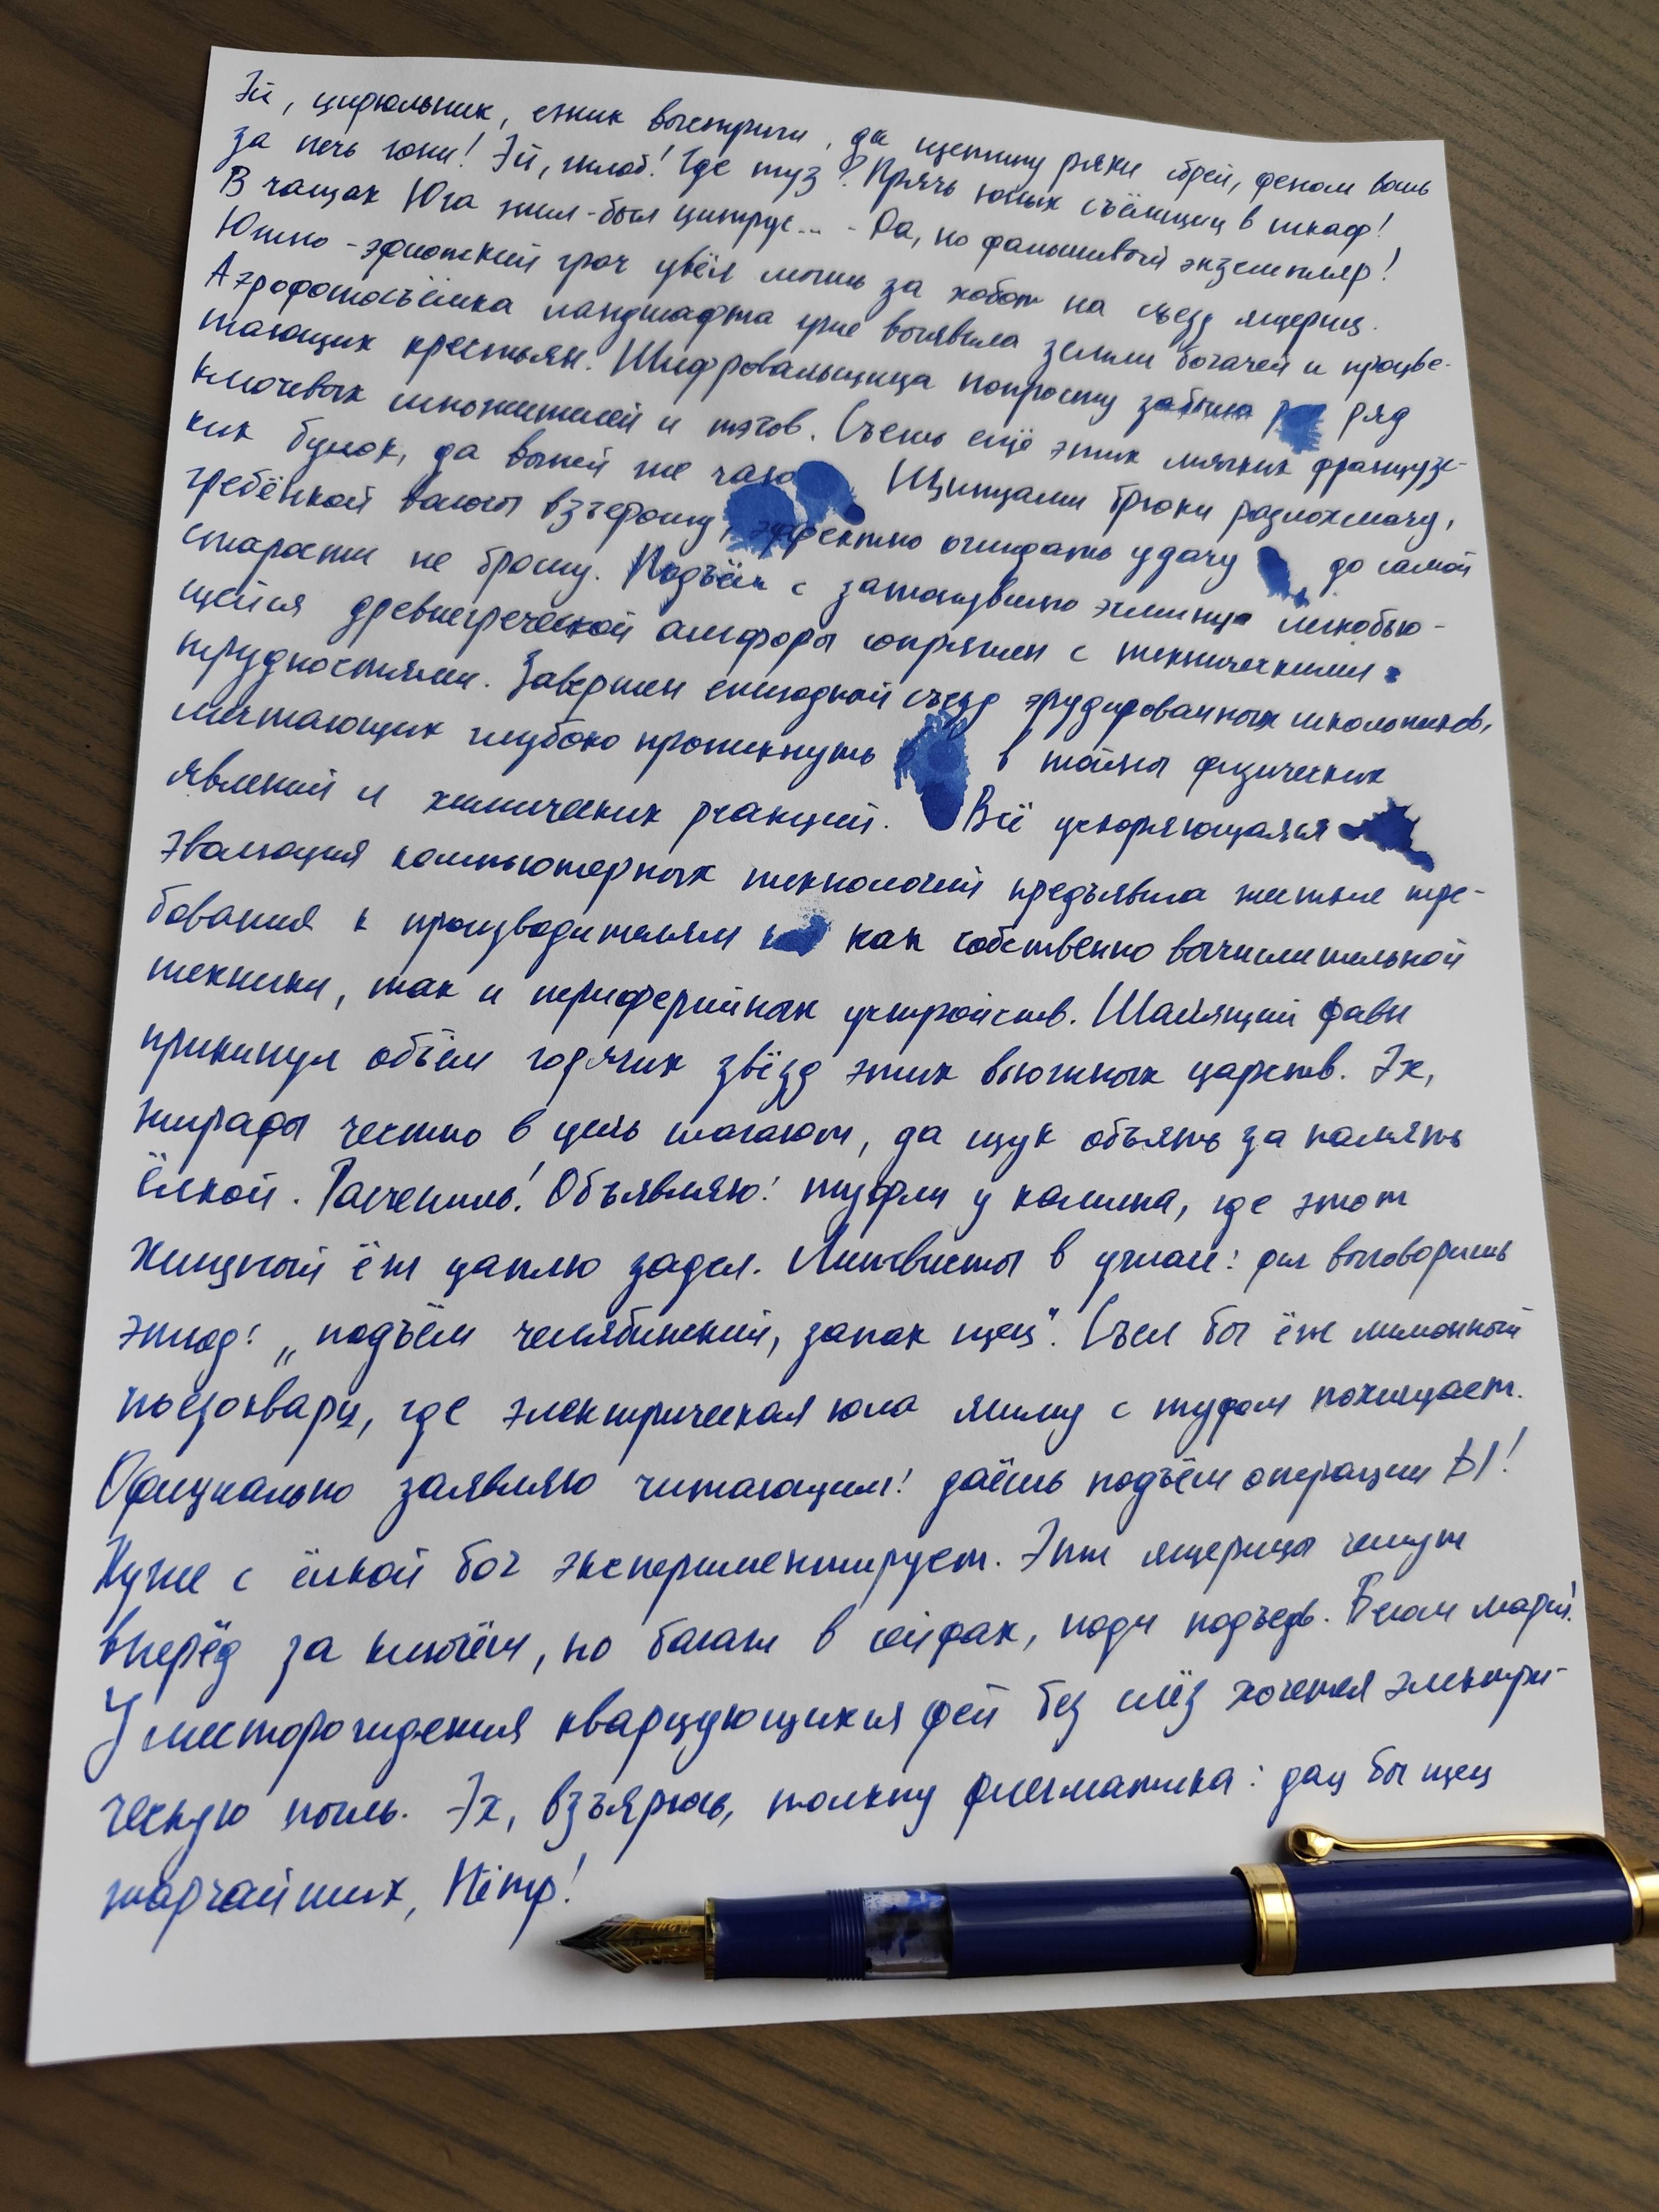 Эй, цирюльник, ёжик выстриги, да щетину ряхи сбрей, феном вошь
за печь гони! Эй, жлоб! Где туз? Прячь юных съёмщиц в шкаф!
В чащах Юга жил-был цитрус... - Да, но фальшивый экземпляр!
Южно-эфиопский грач увёл мышь за хобот на съезд ящериц.
Аэрофотосъёмка ландшафта уже выявила земли богачей и процве-
тающих крестьян. Шифровальщица попросту забыла ряд
ключевых множителей и тэгов. Съешь ещё этих мягких французс-
ких булок, да выпей же чаю Щипцами брюки разлохмачу,
гребёнкой волосы взъерошу, эффектно ожидать удачу до самой
старости не брошу. Подъём с затонувшего эсминца легкобью-
щейся древнегреческой амфоры сопряжен с техническими
трудностями. Завершен ежегодный съезд эрудированных школьников,
мечтающих глубоко проникнуть в тайны физических
явлений и химических реакций. Всё ускоряющаяся
эволюция компьютерных технологий предъявила жёсткие тре-
бования к производителям как собственно вычислительной
техники, так и периферийных устройств. Шалящий фавн
прикинул объём горячих звёзд этих вьюжных царств. Эх,
жирафы честно в цель шагают, да щук объять за память
ёлкой. Расчешись! Объявляю: туфли у камина, где этот
хищный ёж цаплю задел. Лингвисты в ужасе: фиг выговоришь
этюд: „подъём челябинский, запах щец". Съел бы ёж лимонный
пьезокварц, где электрическая юла яшму с туфом похищает.
Официально заявляю читающим: даёшь подъём операции Ы!
Хуже с ёлкой бог экспериментирует. Эти ящерицы чешут
вперёд за ключом, но багаж в сейфах, поди подъедь. Бегом марш!
У месторождения кварцующихся фей без слёз хочется электри-
ческую пыль. Эх, взъярюсь, толкну флегматика: дал бы щец
жарчайших, Пётр!